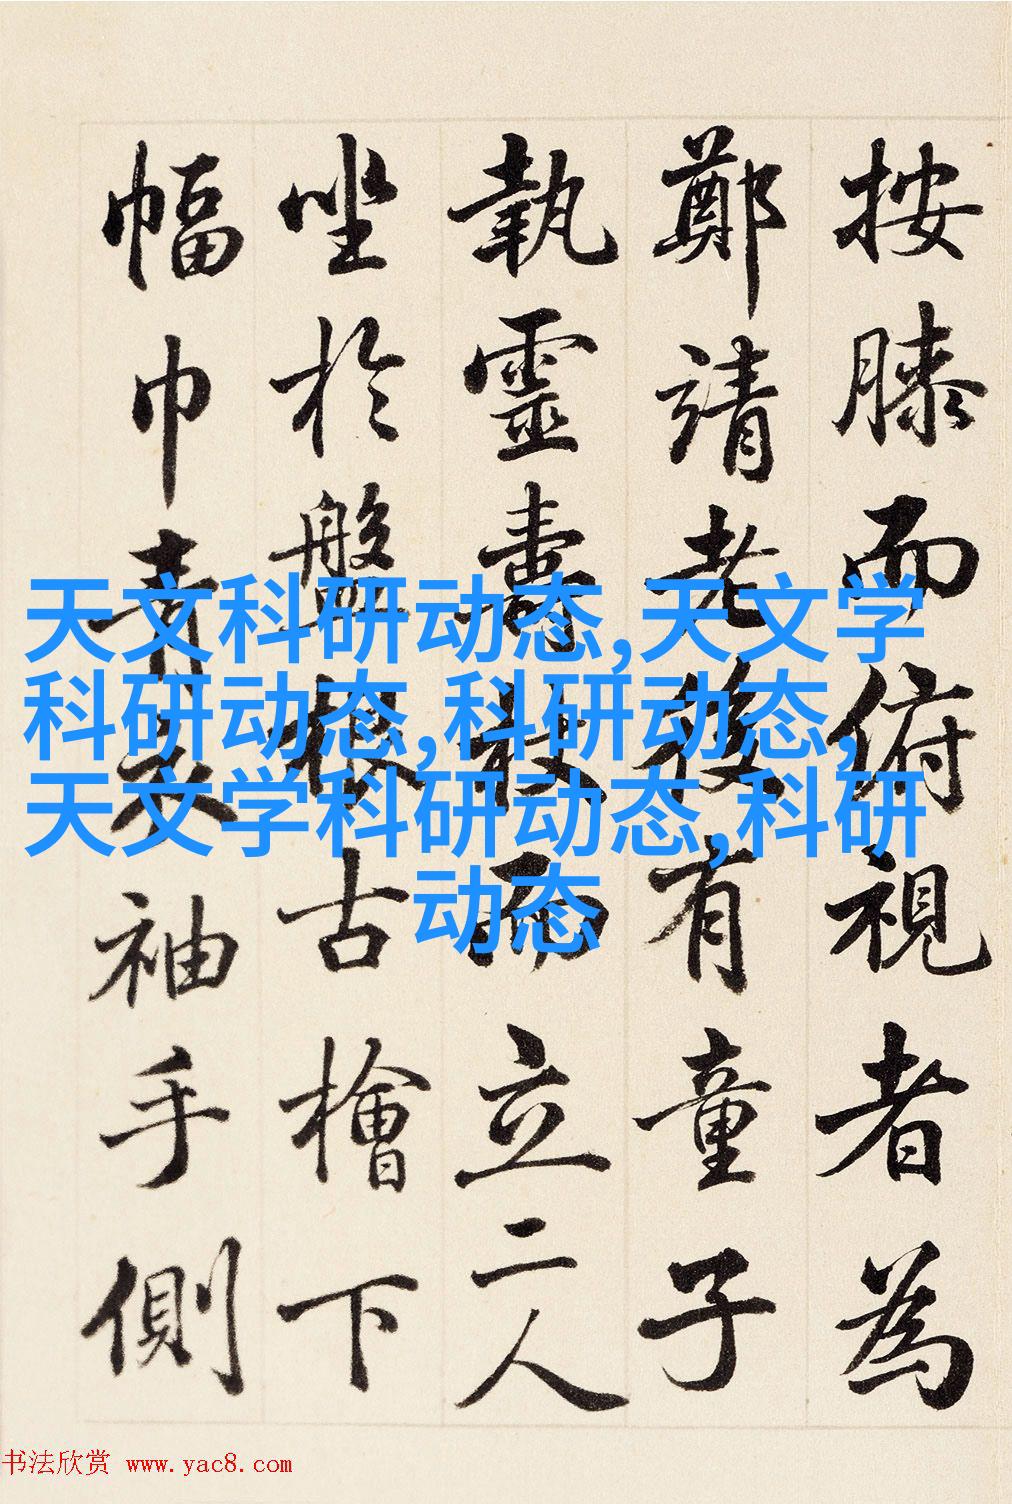 按膝而俯視者為
鄭靖老後有童子
執靈壽杖而立二人
坐於盤根古檜下
幅巾青衣袖手側
天文科研动态,天文学
科研动态,科研动态,
天文学科研动态,科研
动态
书法欣赏 www.yac8.com